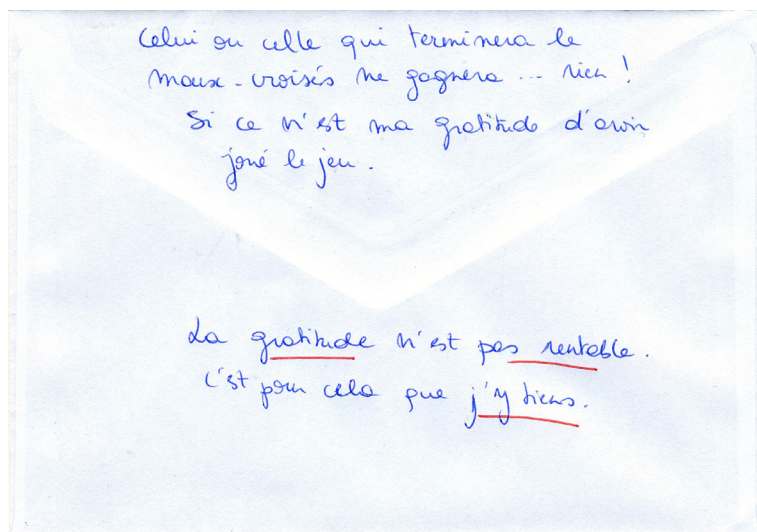 Celui ou celle qui terminera le
maux-croisés ne gagnera ... rien !
Si ce n'est ma gratitude d'avoir
joué le jeu.
La gratitude n'est pas rentable.
C'est pour cela que j'y tiens.